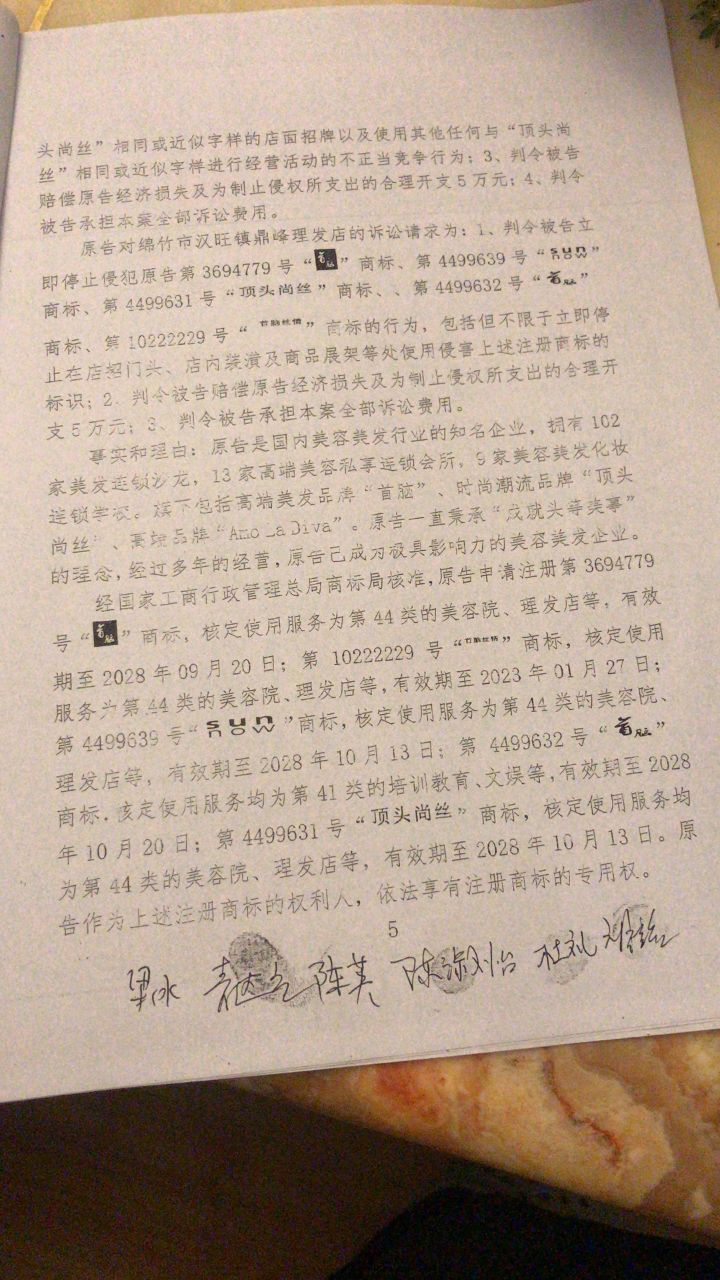 头尚丝”相同或近似字样的店面招牌以及使用其他任何与“顶头尚
丝”相同或近似字样进行经营活动的不正当竞争行为；3、判令被告
赔偿原告经济损失及为制止侵权所支出的合理开支5万元；4、判令
被告承担本案全部诉讼费用。
原告对绵竹市汉旺镇鼎峰理发店的诉讼请求为：1、判令被告立
即停止侵犯原告第3694779号“首脑”商标、第4499639号“sun now”
商标、第4499631号“顶头尚丝”商标、、第4499632号“首脑”
商标、第10222229号“首脑丝情”商标的行为，包括但不限于立即停
止在店招门头、店内装潢及商品展架等处使用侵害上述注册商标的
标识；2、判令被告赔偿原告经济损失及为制止侵权所支出的合理开
支5万元；3、判令被告承担本案全部诉讼费用。
事实和理由：原告是国内美容美发行业的知名企业，拥有102
家美发连锁沙龙，13家高端美容私享连锁会所，9家美容美发化妆
连锁学校。旗下包括高端美发品牌“首脑”、时尚潮流品牌“顶头
尚丝”、高端品牌“Amo La Diva”。原告一直秉承“成就头等美事”
的理念，经过多年的经营，原告已成为极具影响力的美容美发企业。
经国家工商行政管理总局商标局核准，原告申请注册第3694779
号“首脑”商标，核定使用服务为第44类的美容院、理发店等，有效
期至2028年09月20日；第10222229号“首脑丝情”商标，核定使用
服务为第44类的美容院、理发店等，有效期至2023年01月27日；
第4499639号“sun now”商标，核定使用服务为第44类的美容院、
理发店等，有效期至2028年10月13日；第4499632号“首脑”
商标，核定使用服务均为第41类的培训教育、文娱等，有效期至2028
年10月20日；第4499631号“顶头尚丝”商标，核定使用服务均
为第44类的美容院、理发店等，有效期至2028年10月13日。原
告作为上述注册商标的权利人，依法享有注册商标的专用权。
5
梁冰 陈美 杜礼